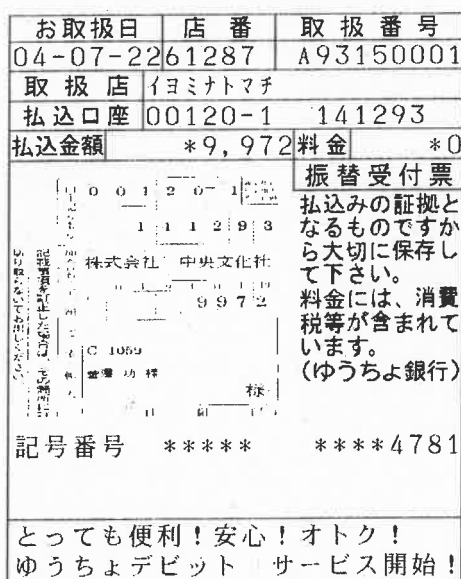 お取扱日 店番 取扱番号
04-07-22 61287 A93150001
取扱店 イヨミナトマチ
払込口座 00120-1 141293
払込金額 *9,972 料金 *0
振替受付票
払込みの証拠と
なるものですか
ら大切に保存し
て下さい。
料金には、消費
税等が含まれて
います。
(ゆうちょ銀行)
0 0 1 2 0 - 1
1 4 1 2 9 3
株式会社 中央文化社
9 9 7 2
C 1059
功 様
様
記載事項を訂正した場合は、その箇所に
切り取らないでお出しください。
記号番号 ***** ****4781
とっても便利!安心!オトク!
ゆうちょデビット サービス開始!